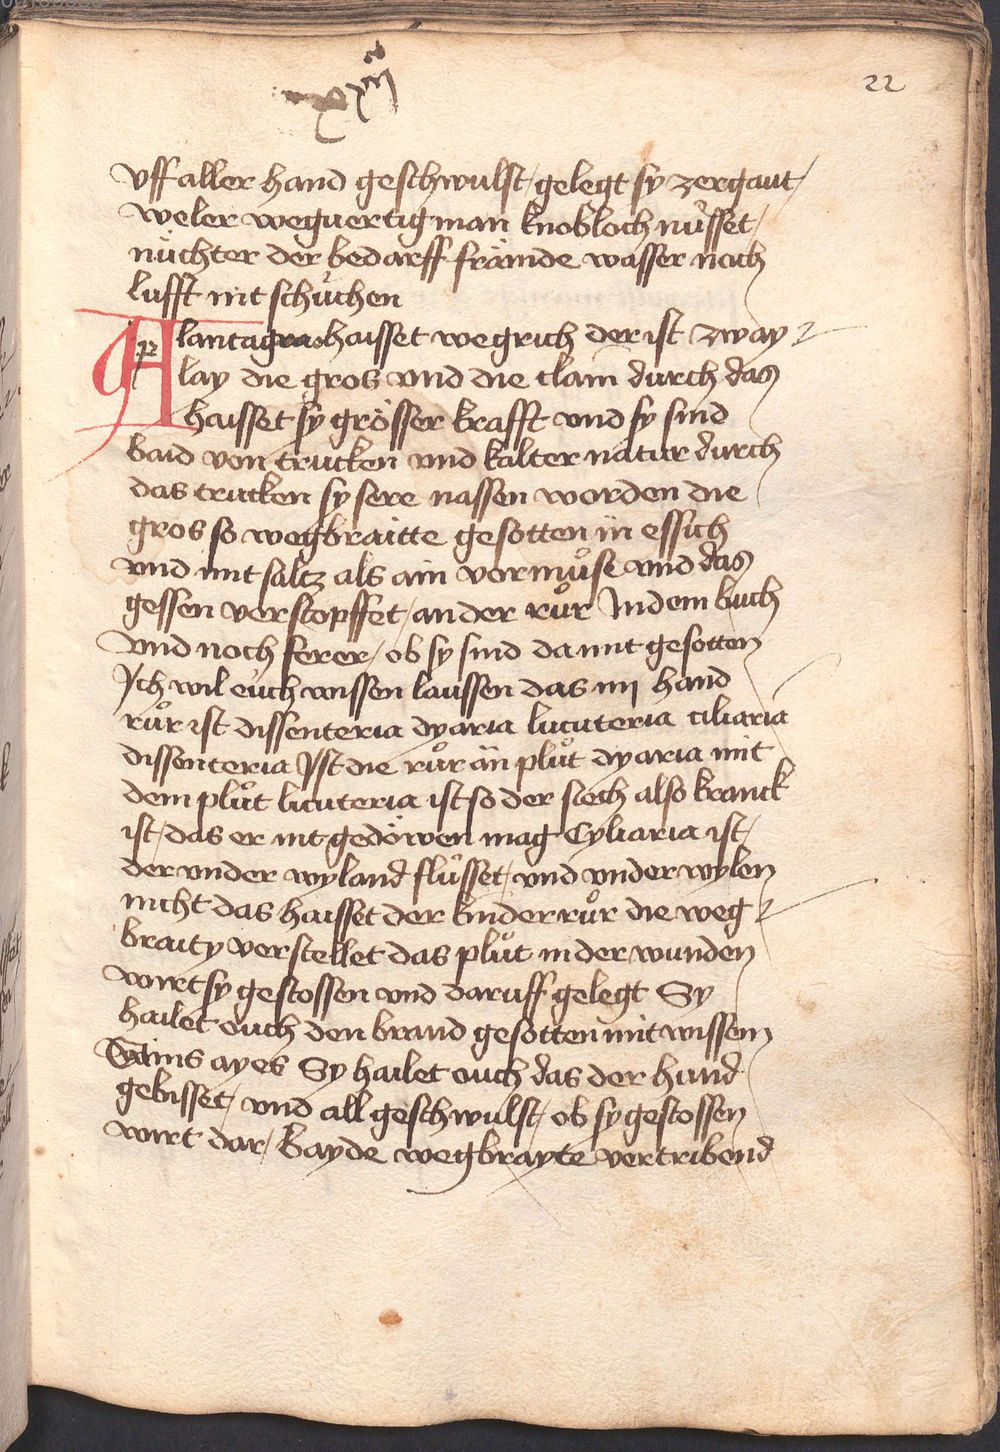 22
vff aller hand geschwulst / gelegt sy zergaut /
weler weguertig man knobloch nüsset /
nüchter der bedarff främde wasser noch
lufft nit schüchen
Plantago haisset wegrich der ist zway
lay die gros vnd die clain durch das
haisset sy grösser krafft vnd sy sind
baid von trucken vnd kalter natur durch
das trucken sy sere nassen worden die
gros so wegbraitte gesotten in essich
vnd mit saltz als ain vormůse vnd das
gessen verstopffet / an der růr In dem buch
vnd noch serer / ob sy sind da mit gesotten
Ich wil euch wissen laussen das iiij hand
růr ist dissenteria dyaria lucuteria ciliaria
dissenteria Ist die růr än plůt dyaria mit
dem plůt licuteria ist so der siech also kranck
ist / das er nit gedöwen mag Cyliaria ist /
der vnder wyland flüsset / vnd vnder wylen
nicht das haisset der kinder růr die weg
braity verstellet das plůt in der wunden
wirt sy gestossen vnd daruff gelegt Sy
hailet ouch den brand gesotten mit wissem
ains ayes Sy hailet ouch das der hund
gebisset / vnd all geschwulst / ob sy gestossen
wirt dar / Bayde wegbrayte vertribend